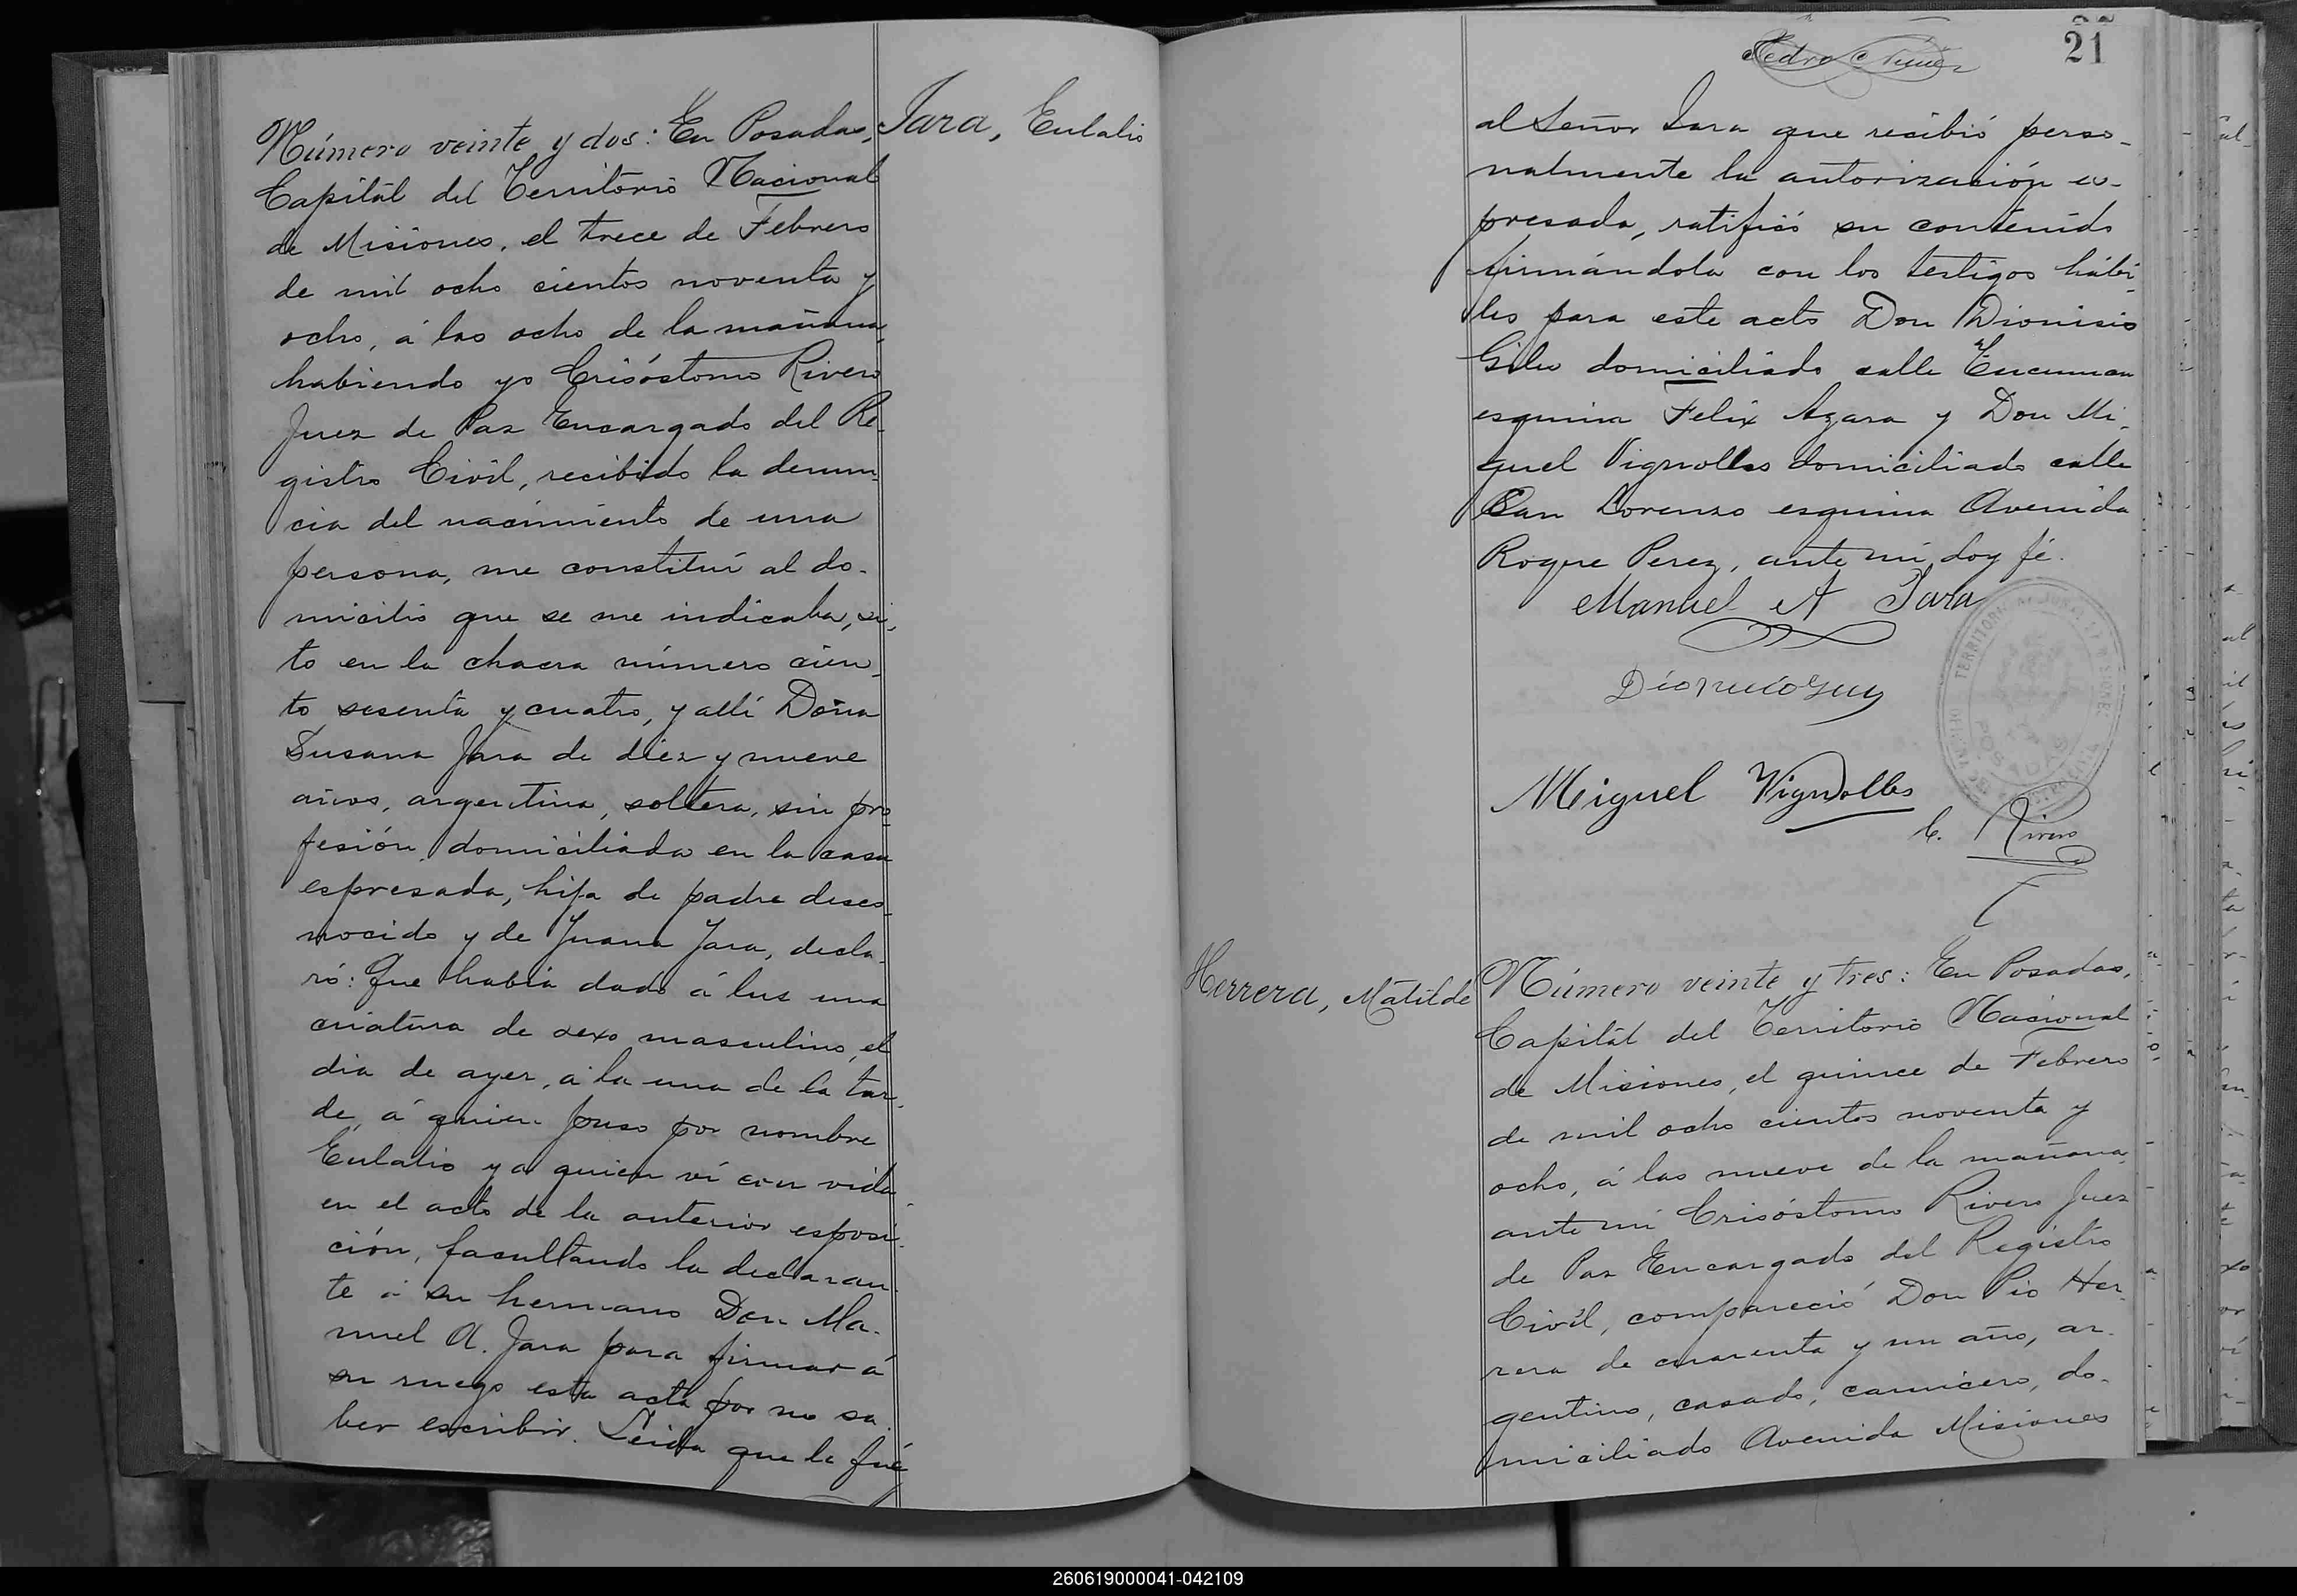 Jara, Eulalio
Número veinte y dos: En Posadas,
Capital del Territorio Nacional
de Misiones, el trece de Febrero
de mil ocho cientos noventa y
ocho, á las ocho de la mañana,
habiendo yo Crisóstomo Rivero
Juez de Paz Encargado del Re-
gistro Civil, recibido la denun-
cia del nacimiento de una
persona, me constituí al do-
micilio que se me indicaba, si-
to en la chacra número cien-
to sesenta y cuatro, y allí Doña
Susana Jara de diez y nueve
años, argentina, soltera, sin pro-
fesión, domiciliada en la casa
espresada, hija de padre desco-
nocido y de Juana Jara, decla-
ró: Que había dado á luz una
criatura de sexo masculino, el
dia de ayer, á la una de la tar-
de, á quien puso por nombre
Eulalio y á quien ví con vida
en el acto de la anterior esposi-
ción, facultando la declaran-
te á su hermano Don Ma-
nuel A. Jara para firmar á
su ruego esta acta por no sa-
ber escribir. Leida que le fué
21
Pedro
al Señor Jara que recibió perso-
nalmente la autorización es-
presada, ratificó su contenido
firmándola con los testigos hábi-
les para este acto Don Dionisio
domiciliado calle Tucuman
esquina Felix Azara y Don Mi-
guel Vignolles domiciliado calle
San Lorenzo esquina Avenida
Roque Perez, ante mí, doy fé.
Manuel A Jara
Dionicio
Miguel Vignolles
C. Rivero
TERRITORIO
POSADAS
Herrera, Matilde
Número veinte y tres: En Posadas,
Capital del Territorio Nacional
de Misiones, el quince de Febrero
de mil ocho cientos noventa y
ocho, á las nueve de la mañana,
ante mí Crisóstomo Rivero Juez
de Paz Encargado del Registro
Civil, compareció Don Pio Her-
rera de cuarenta y un año, ar-
gentino, casado, carnicero, do-
miciliado Avenida Misiones
260619000041-042109